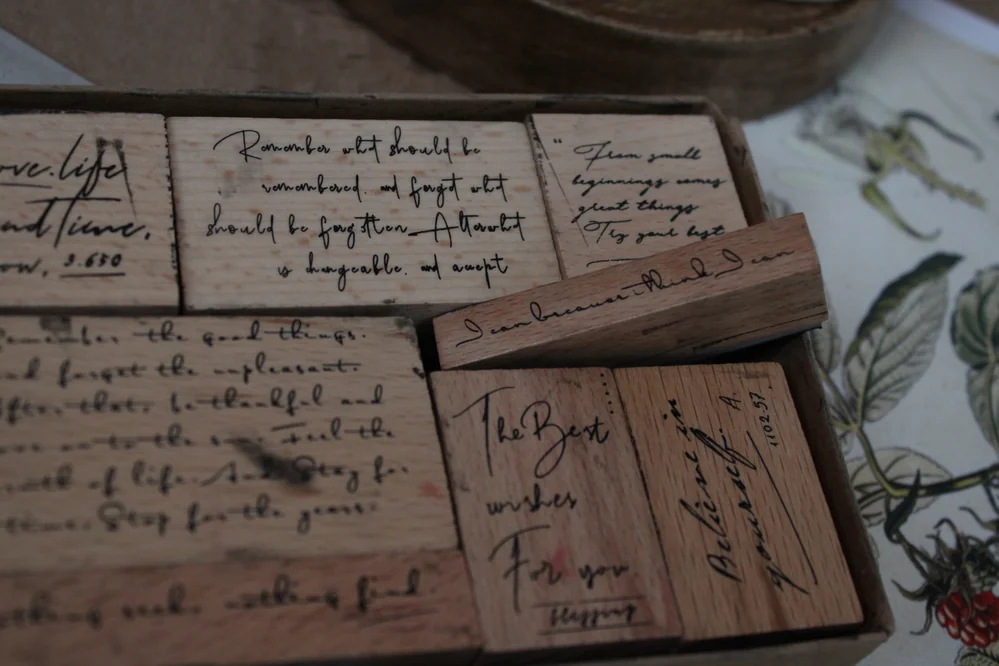 ove.life
and Time.
ow. 3.650
Remember wht should be
remembered. and forget wht
should be forgotten. Alterwht
is changeable. and accept
"From small
beginnings comes
great things
Try your best
I can because i think I can
Remember the good things.
and forget the unpleasant.
After that. be thankful and
on to the Feel the
of life. And Stay for
time. Stop for the years.
nothing seek. nothing find.
The Best
wishes
For you
Blessing
Believe in
yourself. A.
1102.57